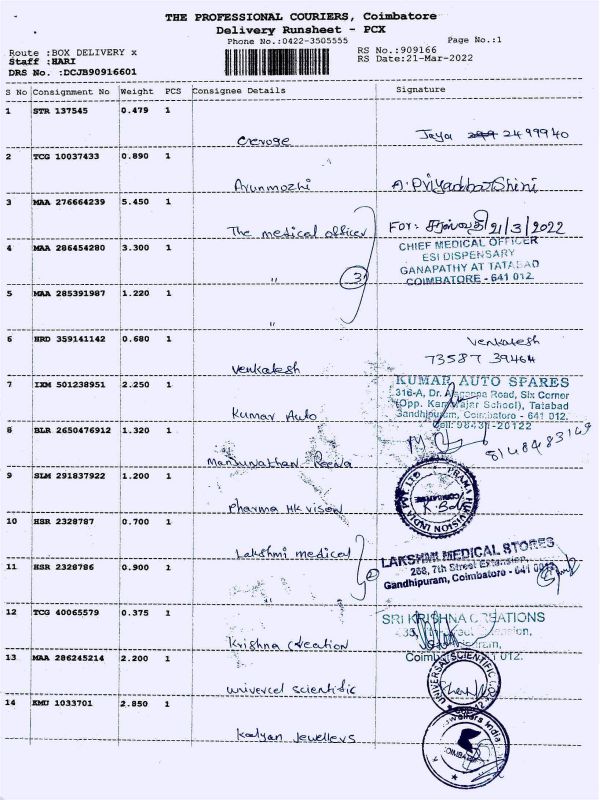 THE PROFESSIONAL COURIERS, Coimbatore
Delivery Runsheet - PCX
Phone No.:0422-3505555
Page No.:1
Route :BOX DELIVERY x
RS No.:909166
Staff :HARI
RS Date:21-Mar-2022
DRS No. :DCJB90916601
S No Consignment No Weight PCS Consignee Details Signature
1 STR 137545 0.479 1
Jaya 2499940
2 TCG 10037433 0.890 1
Arunmozhi A. Priyadharshini
3 MAA 276664239 5.450 1
The medical officer For: சரஸ்வதி 21/3/2022
CHIEF MEDICAL OFFICER
ESI DISPENSARY
GANAPATHY AT TATABAD
COIMBATORE - 641 012.
4 MAA 286454280 3.300 1
" 3
5 MAA 285391987 1.220 1
"
6 HRD 359141142 0.680 1
Venkatesh
73587 39464
Venkatesh
7 IXM 501238951 2.250 1
KUMAR AUTO SPARES
316-A, Dr. Alagappa Road, Six Corner
(Opp. Kamarajar School), Tatabad
Gandhipuram, Coimbatore - 641 012.
Cell: 98431-20122
Kumar Auto
8 BLR 2650476912 1.320 1
8148483149
9 SLM 291837922 1.200 1
Pharma HK vision
COIMBATORE
K. Bal
10 HSR 2328787 0.700 1
Lakshmi medical
LAKSHMI MEDICAL STORES
268, 7th Street Extension,
Gandhipuram, Coimbatore - 641 012.
11 HSR 2328786 0.900 1
" 2
12 TCG 40065579 0.375 1
SRI KRISHNA CREATIONS
Krishna creation
13 MAA 286245214 2.200 1
univercel scientific
UNIVERSAL SCIENTIFIC
14 KMU 1033701 2.850 1
Kalyan Jewellers